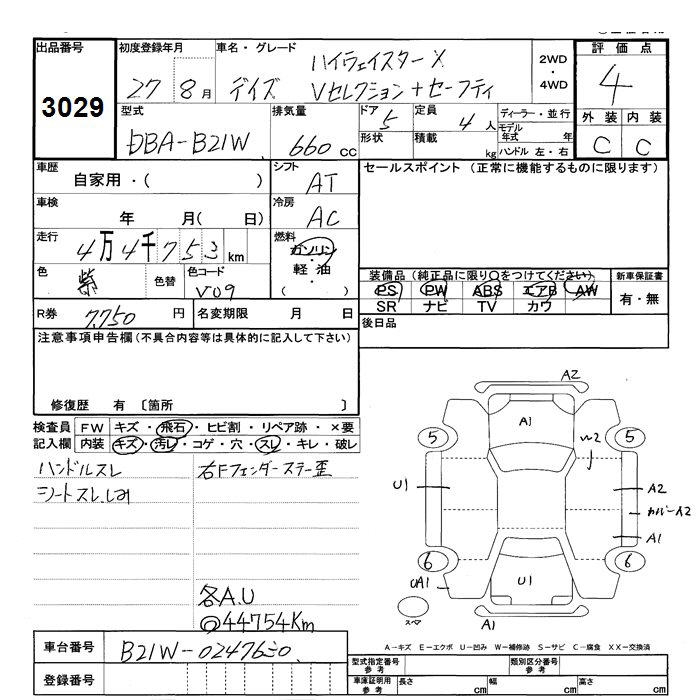 出品番号
3029
初度登録年月
27 8月
車名・グレード
ハイウェイスター X
デイズ Vセレクション+セーフティ
2WD
・
4WD
評価点
4
外装 内装
C C
型式
DBA-B21W
排気量
660 cc
ドア 5
形状
定員 4人
積載 kg
ディーラー・並行
モデル年式 年
ハンドル 左・右
車歴
自家用・( )
シフト
AT
セールスポイント (正常に機能するものに限ります)
車検
年 月( 日)
冷房
AC
走行
4万4千753 km
燃料
ガソリン
・
軽・油
・
( )
色
紫
色替
色コード
V09
装備品 (純正品に限り○をつけてください)
新車保証書
PS PW ABS エアB AW
SR ナビ TV カワ
有・無
R券 7,750 円
名変期限 月 日
後日品
注意事項申告欄 (不具合内容等は具体的に記入して下さい)
修復歴 有 〔箇所 〕
検査員 FW キズ・飛石・ヒビ割・リペア跡・×要
記入欄 内装 キズ・汚レ・コゲ・穴・スレ・キレ・破レ
ハンドルスレ
シートスレ.しみ
右Fフェンダーステー歪
各A.U
◎44754Km
A2
A1
5
5
W2
U1
A2
カバーA2
A1
6
6
UA1
U1
スペア
A1
A-キズ E-エクボ U-凹み W-補修跡 S-サビ C-腐食 XX-交換済
車台番号
登録番号
型式指定番号
参考
類別区分番号
参考
車庫証明用
参考
長さ cm
幅 cm
高さ cm